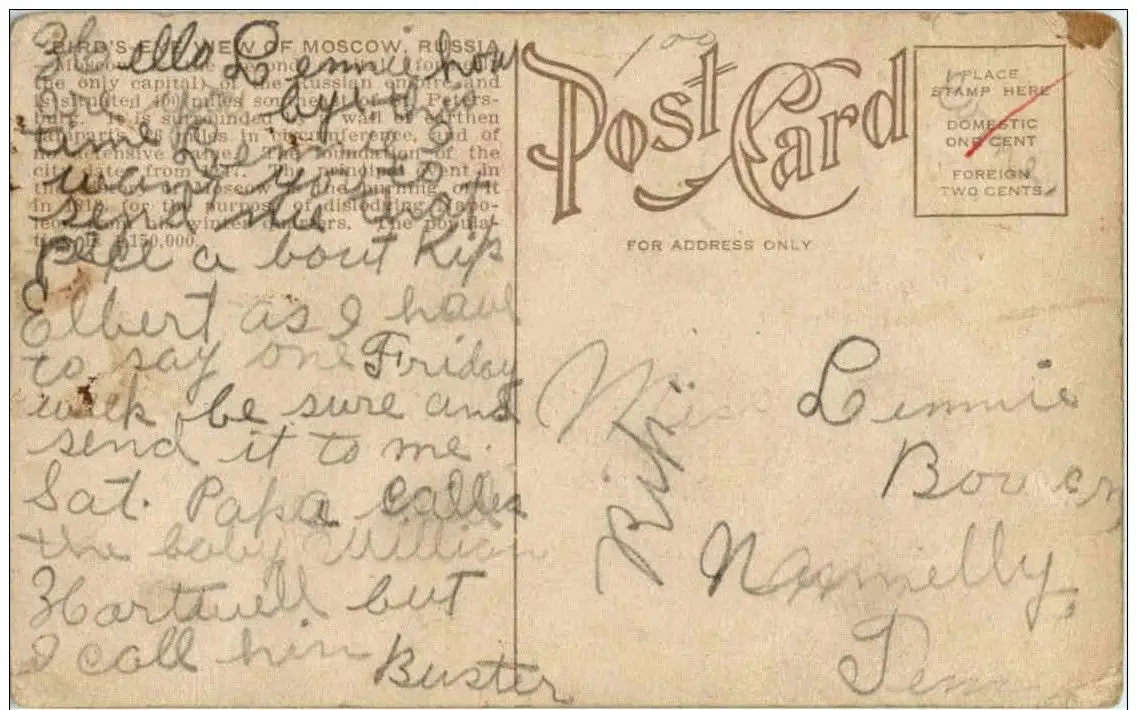 BIRD'S-EYE VIEW OF MOSCOW, RUSSIA
the only capital) of the Russian empire, and
is situated 400 miles southeast of St. Peters-
burg. It is surrounded by a wall of earthen
ramparts, 26 miles in circumference, and of
no defensive value. The foundation of the
city dates from 1147. The principal event in
the history of Moscow is the burning of it
in 1812, for the purpose of dislodging Napo-
leon from his winter quarters. The popula-
tion is 1,150,000.
Hello Lennie how
time Lennie I
want you to
send me that
a bout Kips
Elbert as I have
to say one Friday
week be sure and
send it to me.
Sat. Papa calles
the baby William
Hartwell but
I call him Buster
100
Post Card
PLACE
STAMP HERE
DOMESTIC
ONE CENT
FOREIGN
TWO CENTS
FOR ADDRESS ONLY
Miss Lennie
Bowen
Nunnelly,
Tenn